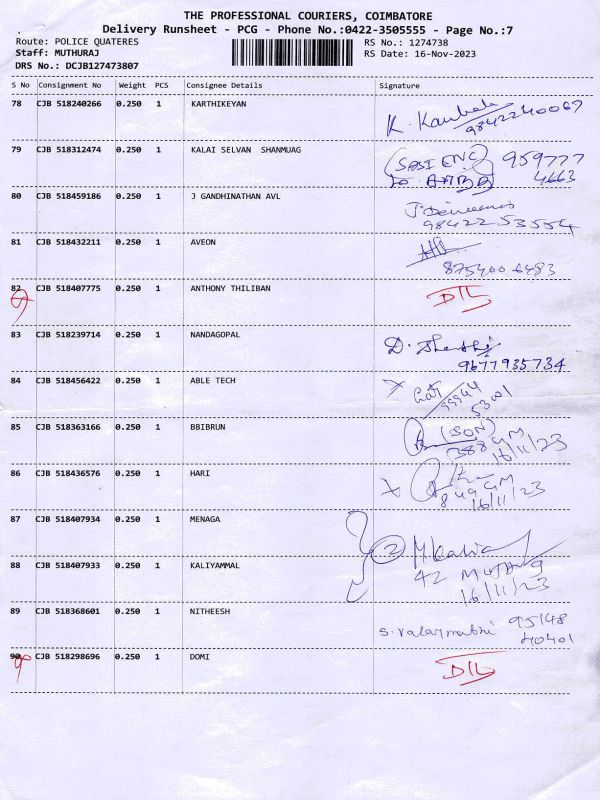 THE PROFESSIONAL COURIERS, COIMBATORE
Delivery Runsheet - PCG - Phone No.:0422-3505555 - Page No.:7
Route: POLICE QUATERES RS No.: 1274738
Staff: MUTHURAJ RS Date: 16-Nov-2023
DRS No.: DCJB127473807
S No Consignment No Weight PCS Consignee Details Signature
78 CJB 518240266 0.250 1 KARTHIKEYAN K.
9842240067
79 CJB 518312474 0.250 1 KALAI SELVAN SHANMUAG 959777
4663
80 CJB 518459186 0.250 1 J GANDHINATHAN AVL
98422 53554
81 CJB 518432211 0.250 1 AVEON
875400 6483
82 CJB 518407775 0.250 1 ANTHONY THILIBAN
83 CJB 518239714 0.250 1 NANDAGOPAL D.
9677935734
84 CJB 518456422 0.250 1 ABLE TECH
85 CJB 518363166 0.250 1 BBIBRUN (SON)
388 GM
16/11/23
86 CJB 518436576 0.250 1 HARI
849 GM
16/11/23
87 CJB 518407934 0.250 1 MENAGA 2
88 CJB 518407933 0.250 1 KALIYAMMAL 42
16/11/23
89 CJB 518368601 0.250 1 NITHEESH S. Valarmathi 95148
40401
90 CJB 518298696 0.250 1 DOMI